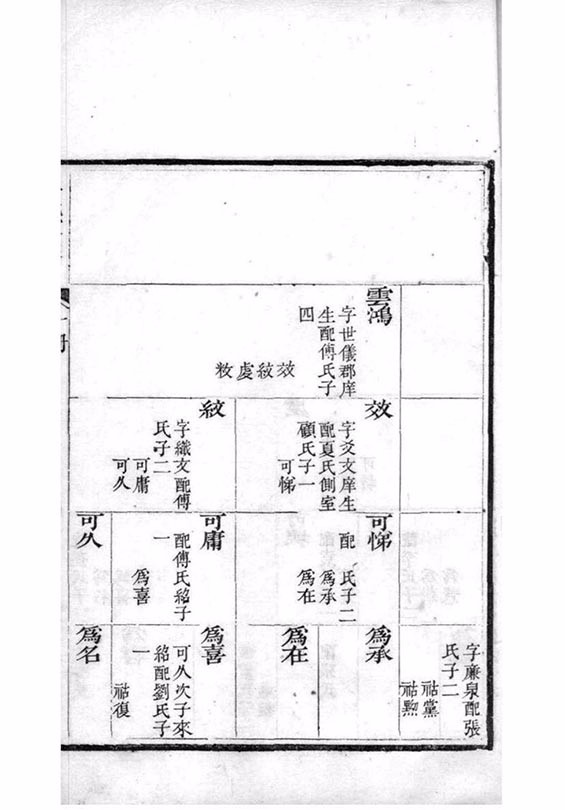 雲鴻
字世儀郡庠
生配傅氏子
四
效紋虔敉
效
字爻文庠生
配夏氏側室
顧氏子一
可悌
紋
字織文配傅
氏子二
可庸
可久
可悌
配　氏子二
爲承
爲在
可庸
配傅氏紹子
一
爲喜
可久
字廉泉配張
氏子二
祜黨
祜勲
爲承
爲在
爲喜
可久次子來
紹配劉氏子
一
祜復
爲名